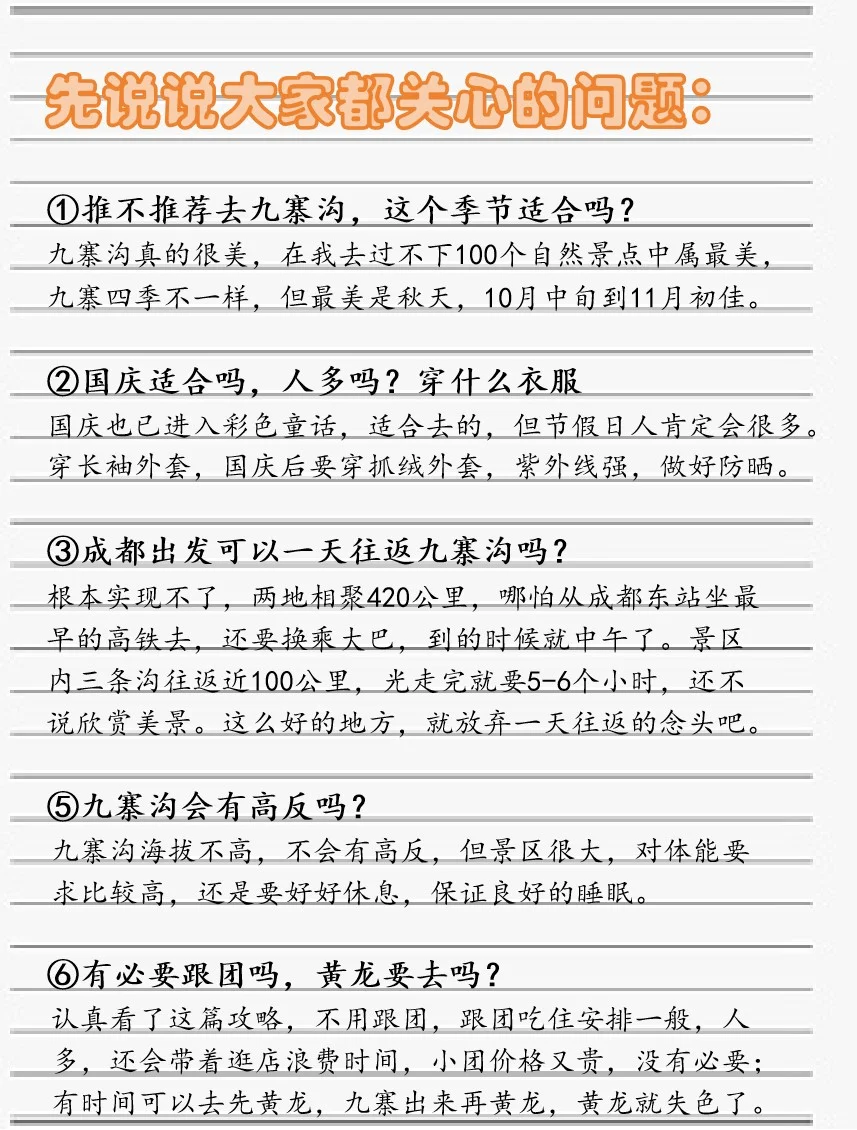 先说说大家都关心的问题：
①推不推荐去九寨沟，这个季节适合吗？
九寨沟真的很美，在我去过不下100个自然景点中属最美，
九寨四季不一样，但最美是秋天，10月中旬到11月初佳。
②国庆适合吗，人多吗？穿什么衣服
国庆也已进入彩色童话，适合去的，但节假日人肯定会很多。
穿长袖外套，国庆后要穿抓绒外套，紫外线强，做好防晒。
③成都出发可以一天往返九寨沟吗？
根本实现不了，两地相聚420公里，哪怕从成都东站坐最
早的高铁去，还要换乘大巴，到的时候就中午了。景区
内三条沟往返近100公里，光走完就要5-6个小时，还不
说欣赏美景。这么好的地方，就放弃一天往返的念头吧。
⑤九寨沟会有高反吗？
九寨沟海拔不高，不会有高反，但景区很大，对体能要
求比较高，还是要好好休息，保证良好的睡眠。
⑥有必要跟团吗，黄龙要去吗？
认真看了这篇攻略，不用跟团，跟团吃住安排一般，人
多，还会带着逛店浪费时间，小团价格又贵，没有必要；
有时间可以去先黄龙，九寨出来再黄龙，黄龙就失色了。